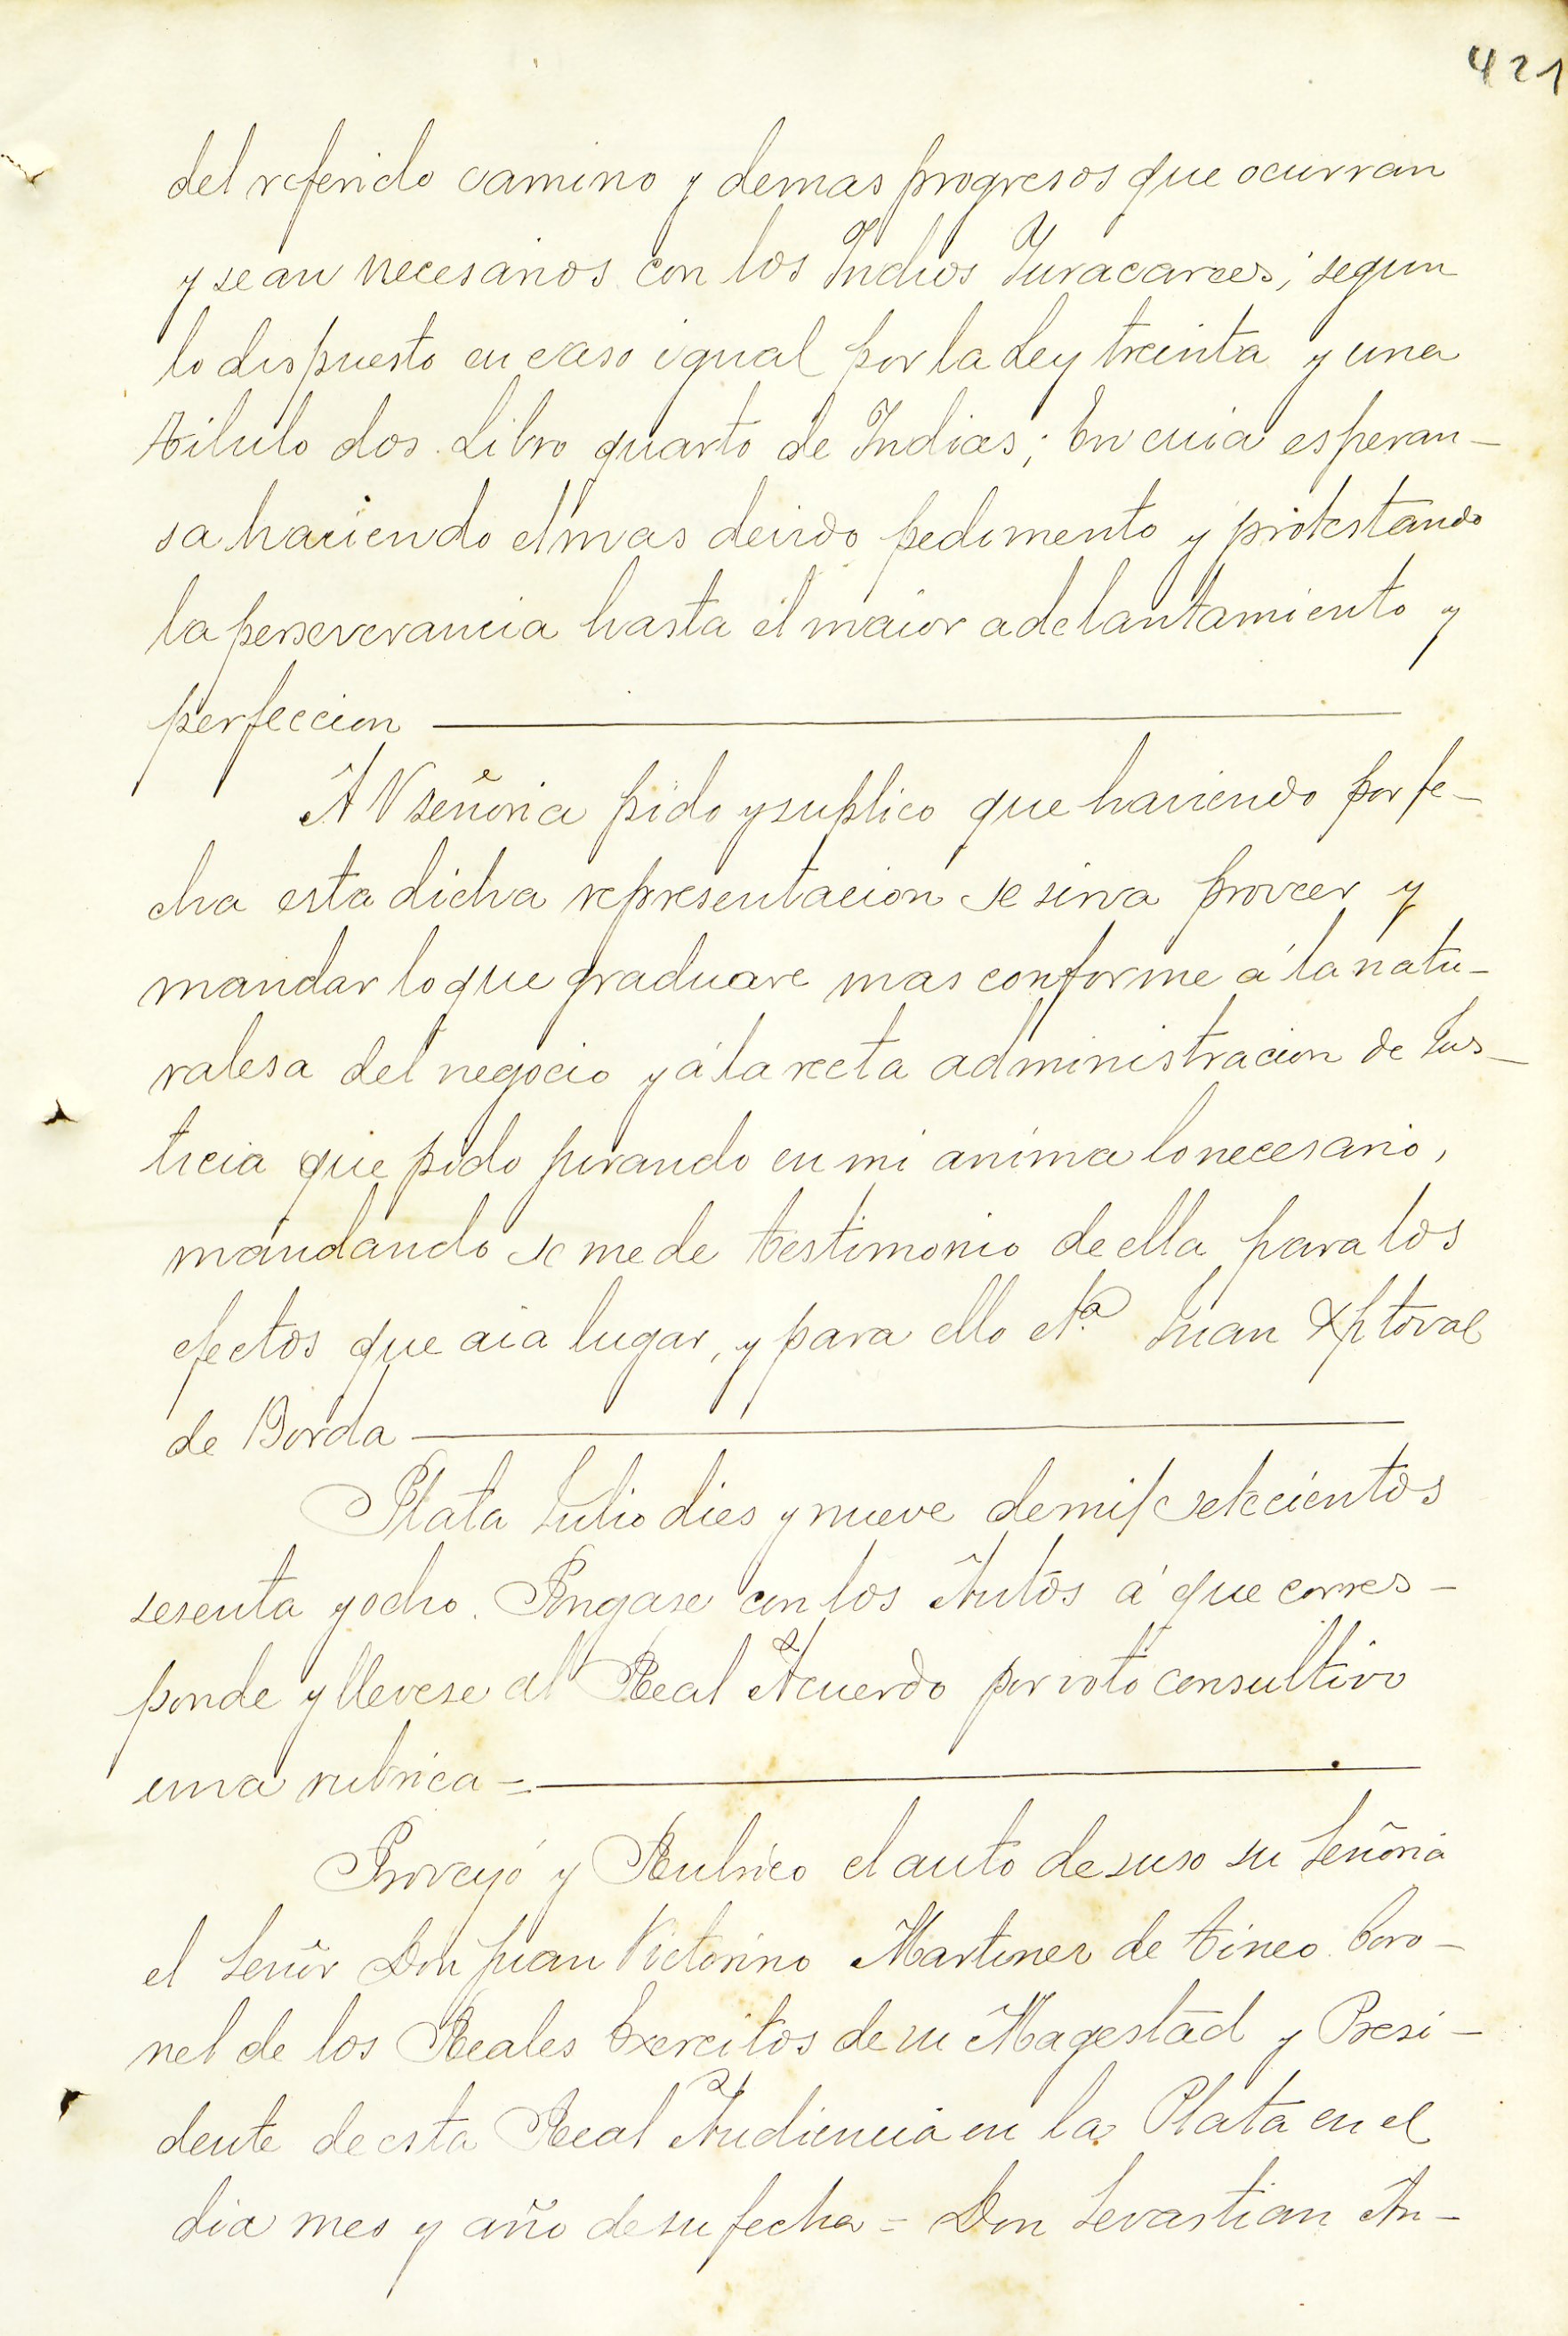 421
del referido camino y demas progresos que ocurran
y sean necesarios con los Indios Yuracarees; segun
lo dispuesto en caso igual por la Ley treinta y una
titulo dos Libro quarto de Indias; En cuia esperan-
sa haciendo el mas devido pedimento y protestando
la perseverancia hasta el maior adelantamiento y
perfeccion
A V señoria pido y suplico que haviendo por fe-
cha esta dicha representacion se sirva proveer y
mandar lo que graduare mas conforme á la natu-
ralesa del negocio y á la recta administracion de Jus-
ticia que pido jurando en mi anima lo necesario,
mandando se me de testimonio de ella para los
efectos que aia lugar, y para ello Juan Xptoval
de Borda
Plata Julio dies y nueve de mil setecientos
sesenta y ocho. Pongase con los Autos á que corres-
ponde y llevese al Real Acuerdo por voto consultivo
una rubrica =
Proveyó y Rubrico el auto de suso su Señoria
el Señor Don Juan Victorino Martines de tineo Coro-
nel de los Reales Exercitos de su Magestad y Presi-
dente de esta Real Audiencia en la Plata en el
dia mes y año de su fecha = Don Sevastian An-